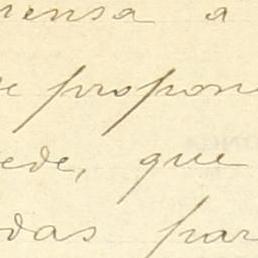 rensa a
e propon
ede, que
das par